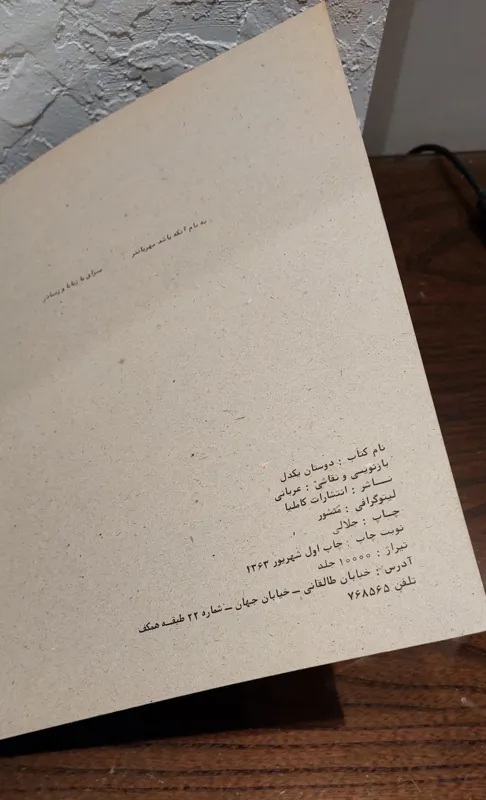 به نام آنکه باشد مهربانتر سزای ما زیانا و رساتر
نام کتاب : دوستان یکدل
بازنویسی و نقاشی : عربانی
ناشر : انتشارات کاملیا
لیتوگرافی : منشور
چاپ : جلالی
نوبت چاپ : چاپ اول شهریور ۱۳۶۳
تیراژ : ۱۰۰۰۰ جلد
آدرس : خیابان طالقانی ـ خیابان جهان ـ شماره ۲۲ طبقه همکف
تلفن ۷۶۸۵۶۵